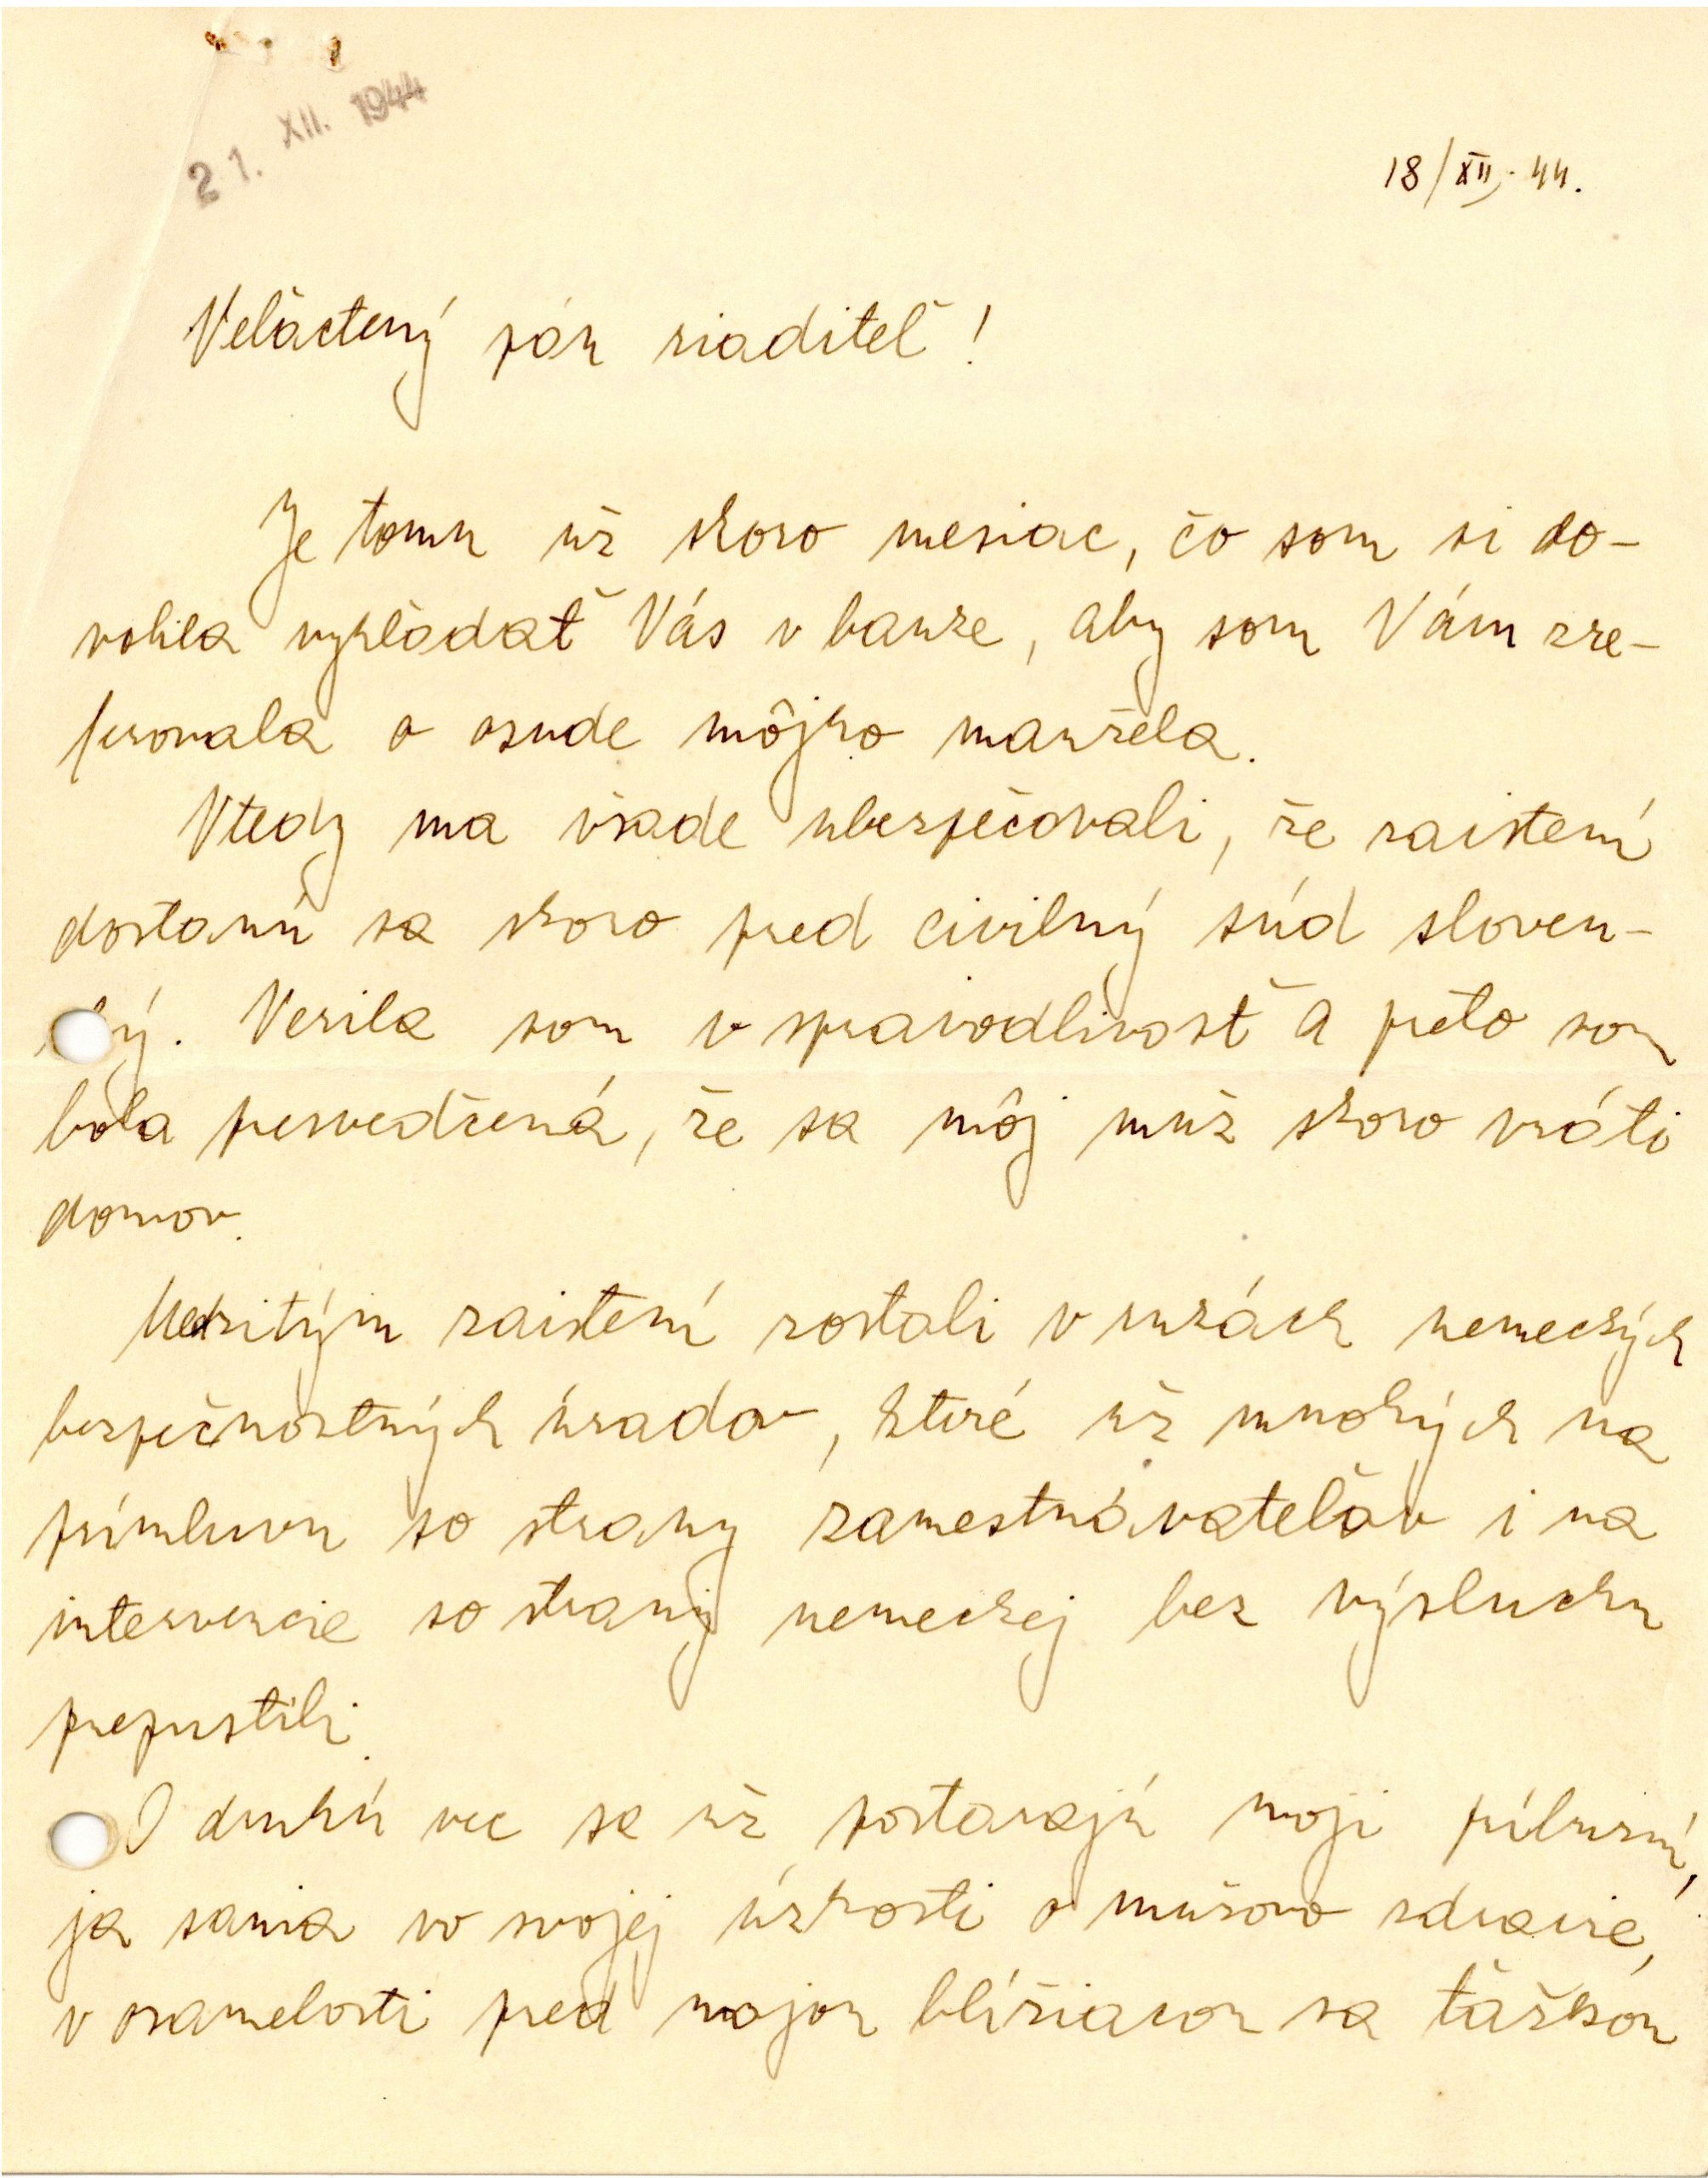 21. XII. 1944
18/XII. 44.
Velactený pán riaditeľ!
Je tomu už skoro mesiac, čo som si do-
volila vyhľadať Vás v banke, aby som Vám zre-
ferovala o osude môjho manžela.
Vtedy ma všade ubezpečovali, že zaistení
dostanú sa skoro pred civilný súd sloven-
ký. Verila som v spravodlivosť a preto som
bola presvedčená, že sa môj muž skoro vráti
domov.
Medzitým zaistení zostali v rukách nemeckých
bezpečnostných úradov, ktoré už mnohých na
prímluvu so strany zamestnávateľov i na
intervencie so strany nemeckej bez výsluchu
prepustili.
O druhú vec sa už postarajú moji príbuzní,
ja sama vo svojej úzkosti o mužovo zdravie,
v osamelosti pred mojou blížiacou sa ťažkou